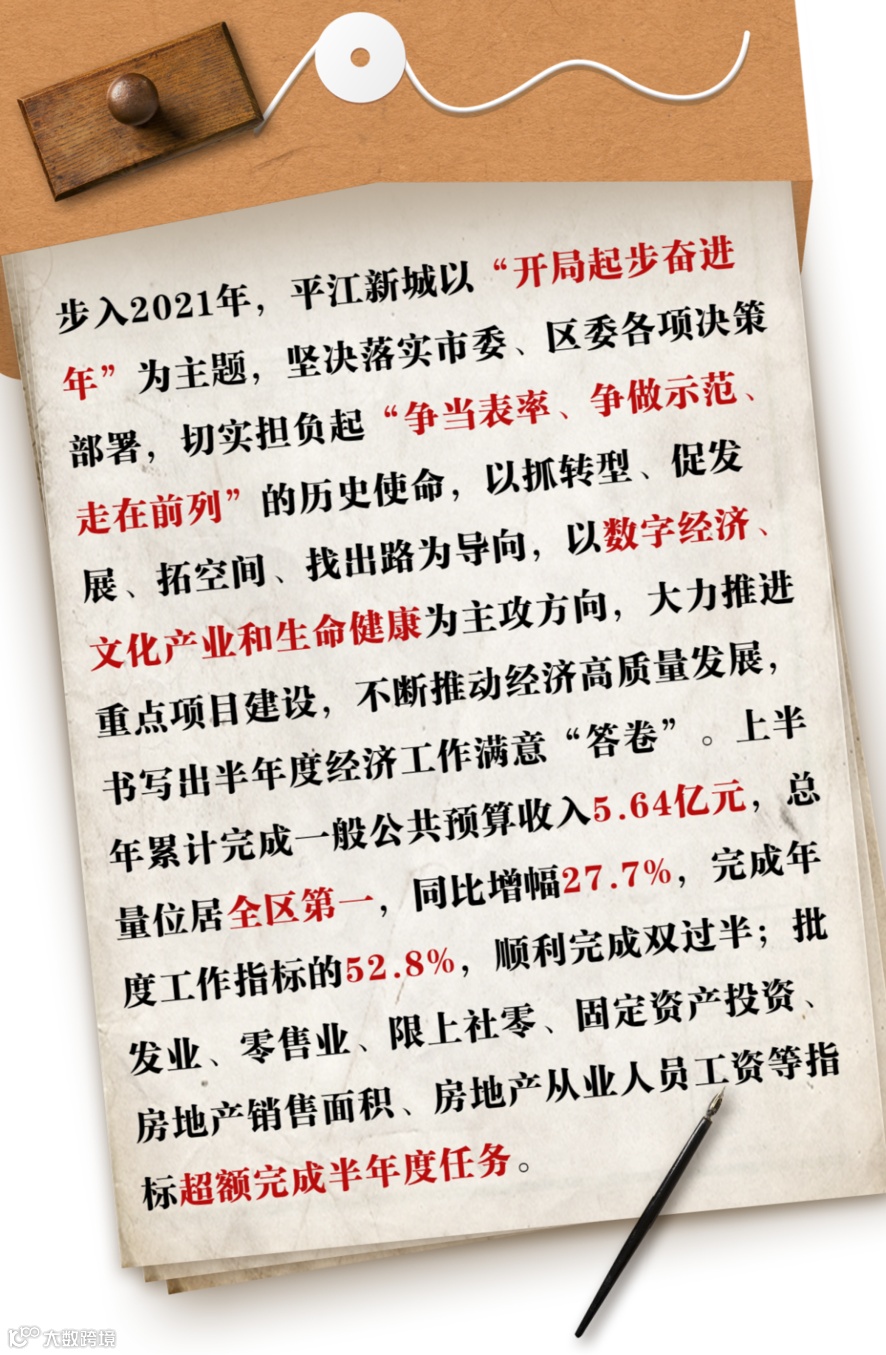 步入2021年，平江新城以“开局起步奋进
年”为主题，坚决落实市委、区委各项决策
部署，切实担负起“争当表率、争做示范、
走在前列”的历史使命，以抓转型、促发
展、拓空间、找出路为导向，以数字经济、
文化产业和生命健康为主攻方向，大力推进
重点项目建设，不断推动经济高质量发展，
书写出半年度经济工作满意“答卷”。上半
年累计完成一般公共预算收入5.64亿元，总
量位居全区第一，同比增幅27.7%，完成年
度工作指标的52.8%，顺利完成双过半；批
发业、零售业、限上社零、固定资产投资、
房地产销售面积、房地产从业人员工资等指
标超额完成半年度任务。
大数跨境